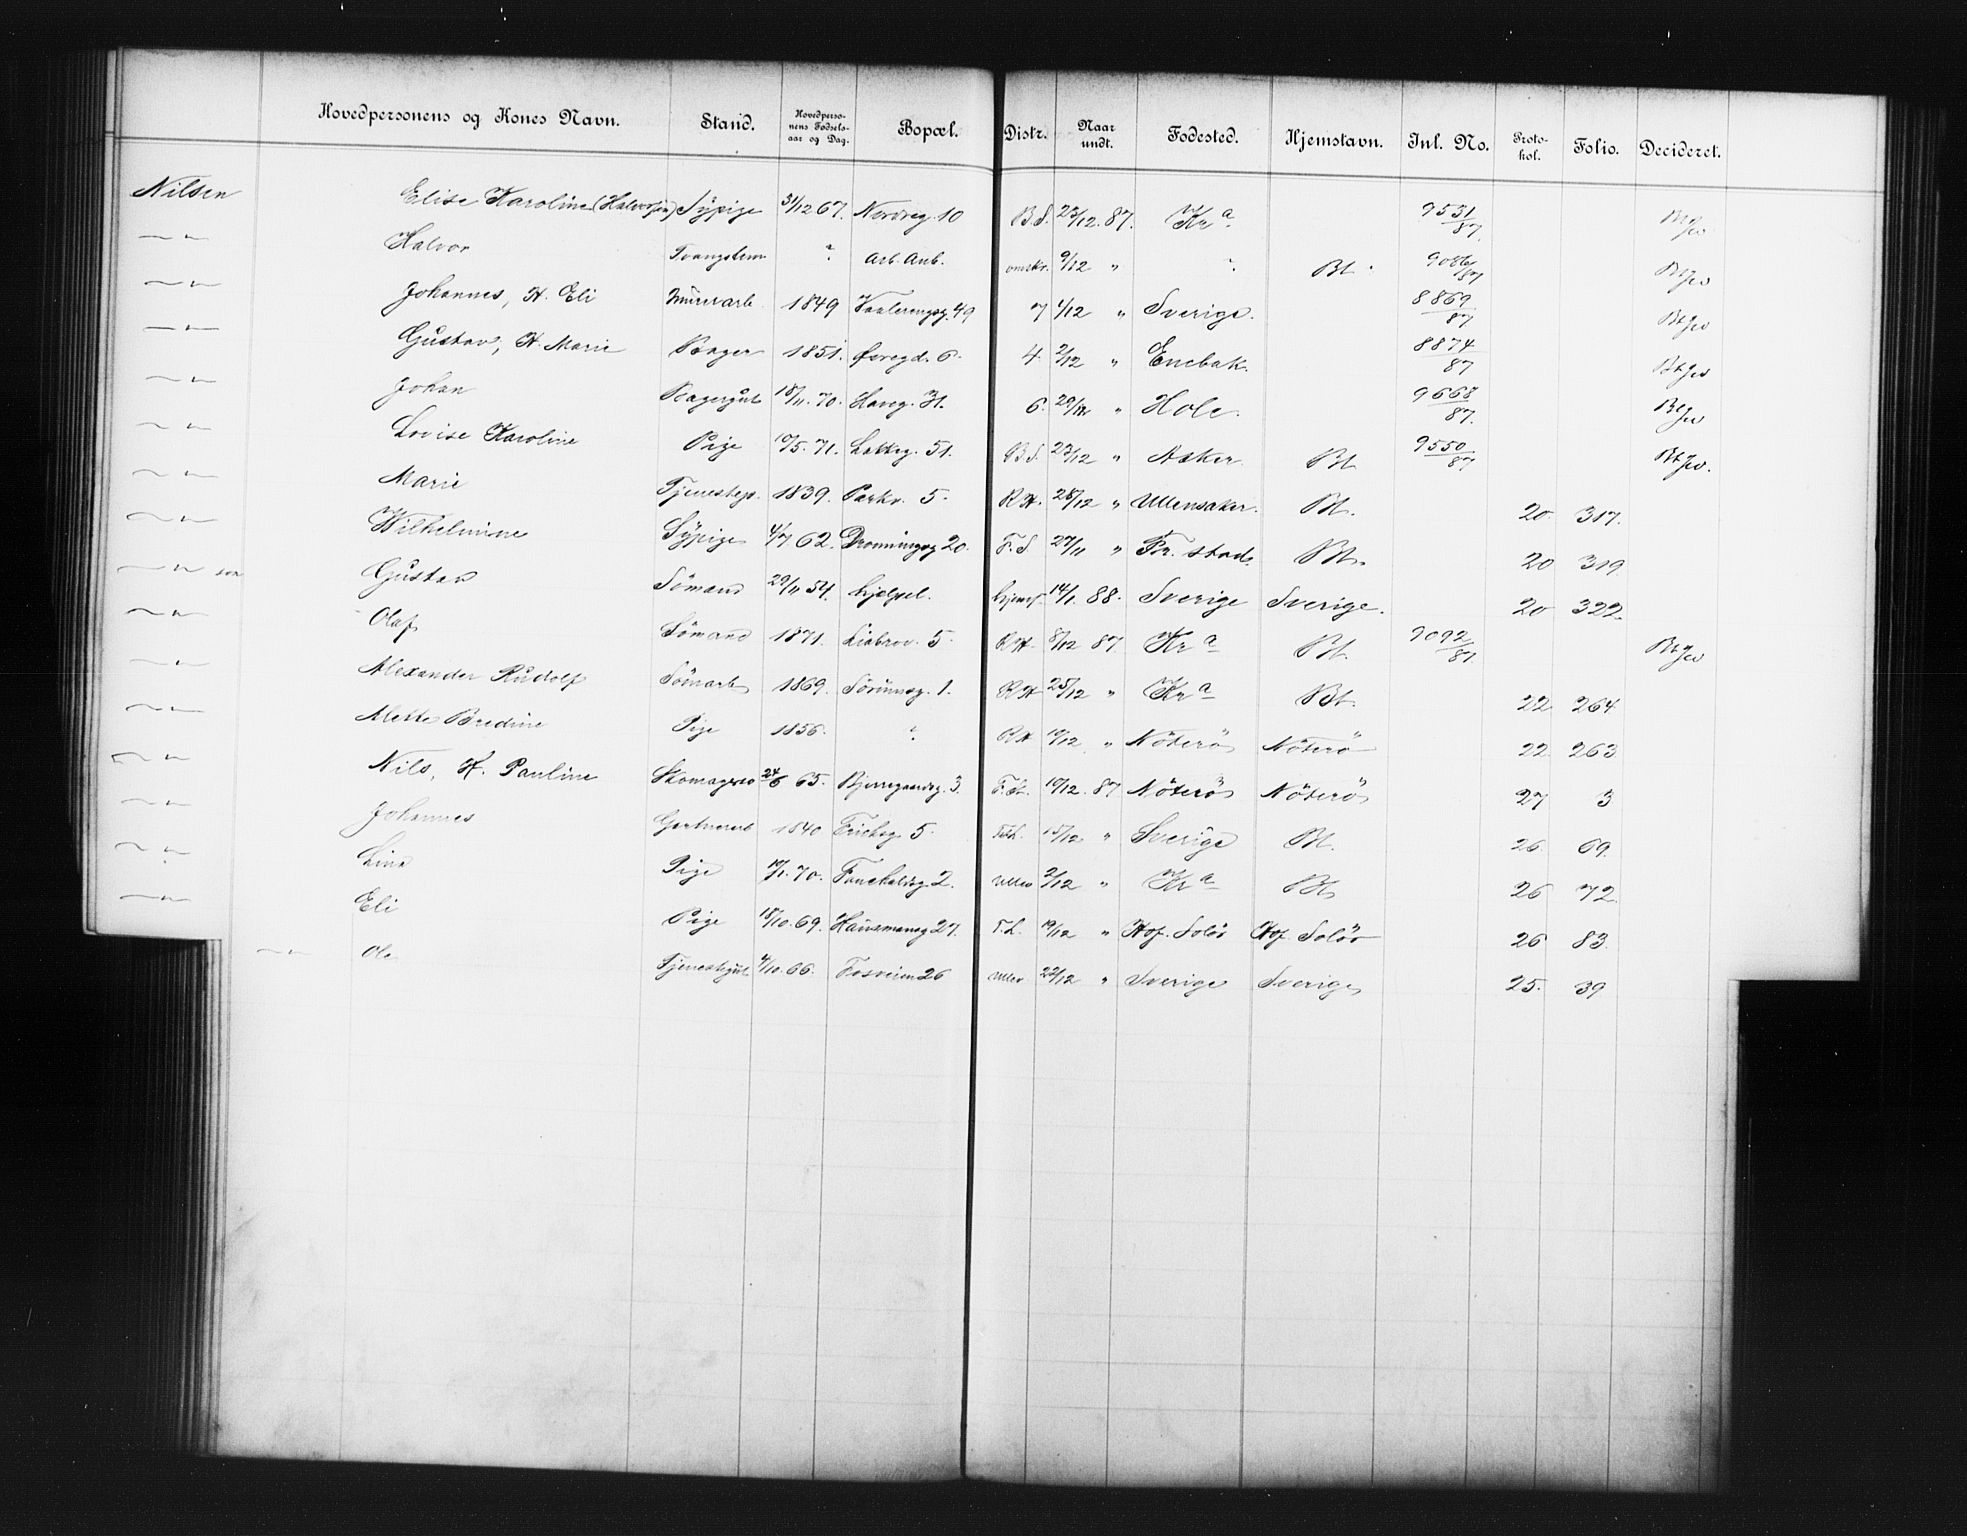 Hovedpersonens og Kones Navn. Stand. Hovedpersonens Fødselsaar og Dag. Bopæl. Distr. Naar undt. Fødested. Hjemstavn. Inl. No. Protokol. Folio. Decideret.
Nilsen Elise Karoline (Halvorsen) Sypige 31/12 67. Nordreg. 10 B.S. 23/12. 87. Kr a. 9531/87.
—"— Halvor Tvangslem ? Arb. Anb. omskr. 9/12 " ? Bt. 9086/87
—"— Johannes, H. Eli Murerarb. 1849 Vaalerengsg. 49 7 1/12 " Sverige. 8869/87
—"— Gustav, H. Marie Bager 1851. Øvregd. 6. 4. 2/12 " Enebak. 8874/87
—"— Johan Bagergut 18/11. 70. Haveg. 31. 6. 29/12 " Hole. 9668/87.
—"— Lovise Karoline Pige 10/5. 71. Lakkeg. 51. B.S. 23/12 " Asker. Bt. 9550/87
—"— Marie Tjenestep. 1839. Parkv. 5. R.H. 28/12 " Ullensaker. Bt. 20. 317.
—"— Wilhelmine Sypige 4/7 62. Dronningsg 20. F.S. 27/11 " Fr. stad. Bt. 20 319
—"— son Gustav Sömand 29/11 54. hjælpsl. hjemf. 14/1. 88. Sverige Sverige. 20 322.
—"— Olaf Sömand 1871. Liabrov. 5. R.H. 8/12 87 Kr a Bt. 9092/87.
—"— Alexander Rudolf Sömand 1869. Sörumsg. 1. R.H. 25/12 " Kr a Bt. 22 264
—"— Mette Bredine Pige 1856. ? R.H. 19/12 " Nöterö Nöterö 22 263
—"— Nils, H. Pauline Skomagersv 24/6 65. Bjerregaardsg. 3. F.L. 19/12. 87 Nöterö Nöterö 27 3
—"— Johannes Gartnerarb 1840 Fricksg 5. 15/12 " Sverige Bt. 26. 69.
—"— Lina Pige 70. Fauchaldsg 2. Ullev 2/12 " Kr a Bt. 26 72.
—"— Eli Pige 18/10. 69. Hausmansg 27. F.L. 19/12 " Hof. Solör Hof. Solör 26 83.
—"— Ole Tjenestegut 4/10. 66. Fosveien 26 Ullev 22/12 " Sverige Sverige 25. 39